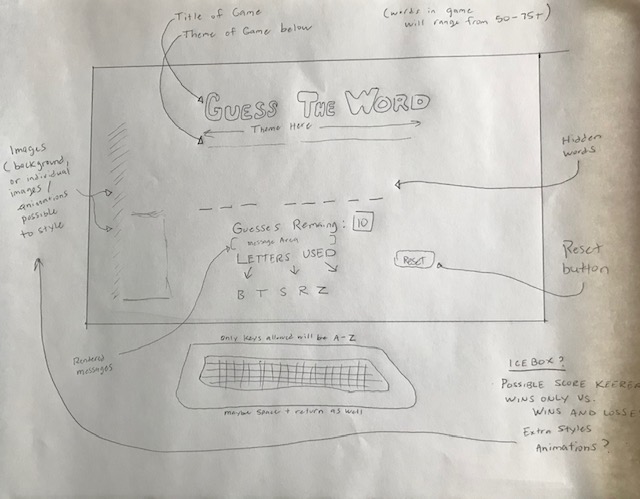 Title of Game
Theme of Game below
(words in game
will range from 50-75+)
GUESS THE WORD
Theme Here
Images
(background,
or individual
images /
animations
possible
to style
Hidden
words
Guesses Remaining: 10
[message Area]
LETTERS USED
B T S R Z
RESET
Reset
button
Rendered
messages
only keys allowed will be A-Z
maybe space + return as well
ICEBOX?
POSSIBLE SCORE KEEPER
WINS ONLY VS.
WINS AND LOSSE
Extra Styles
Animations?